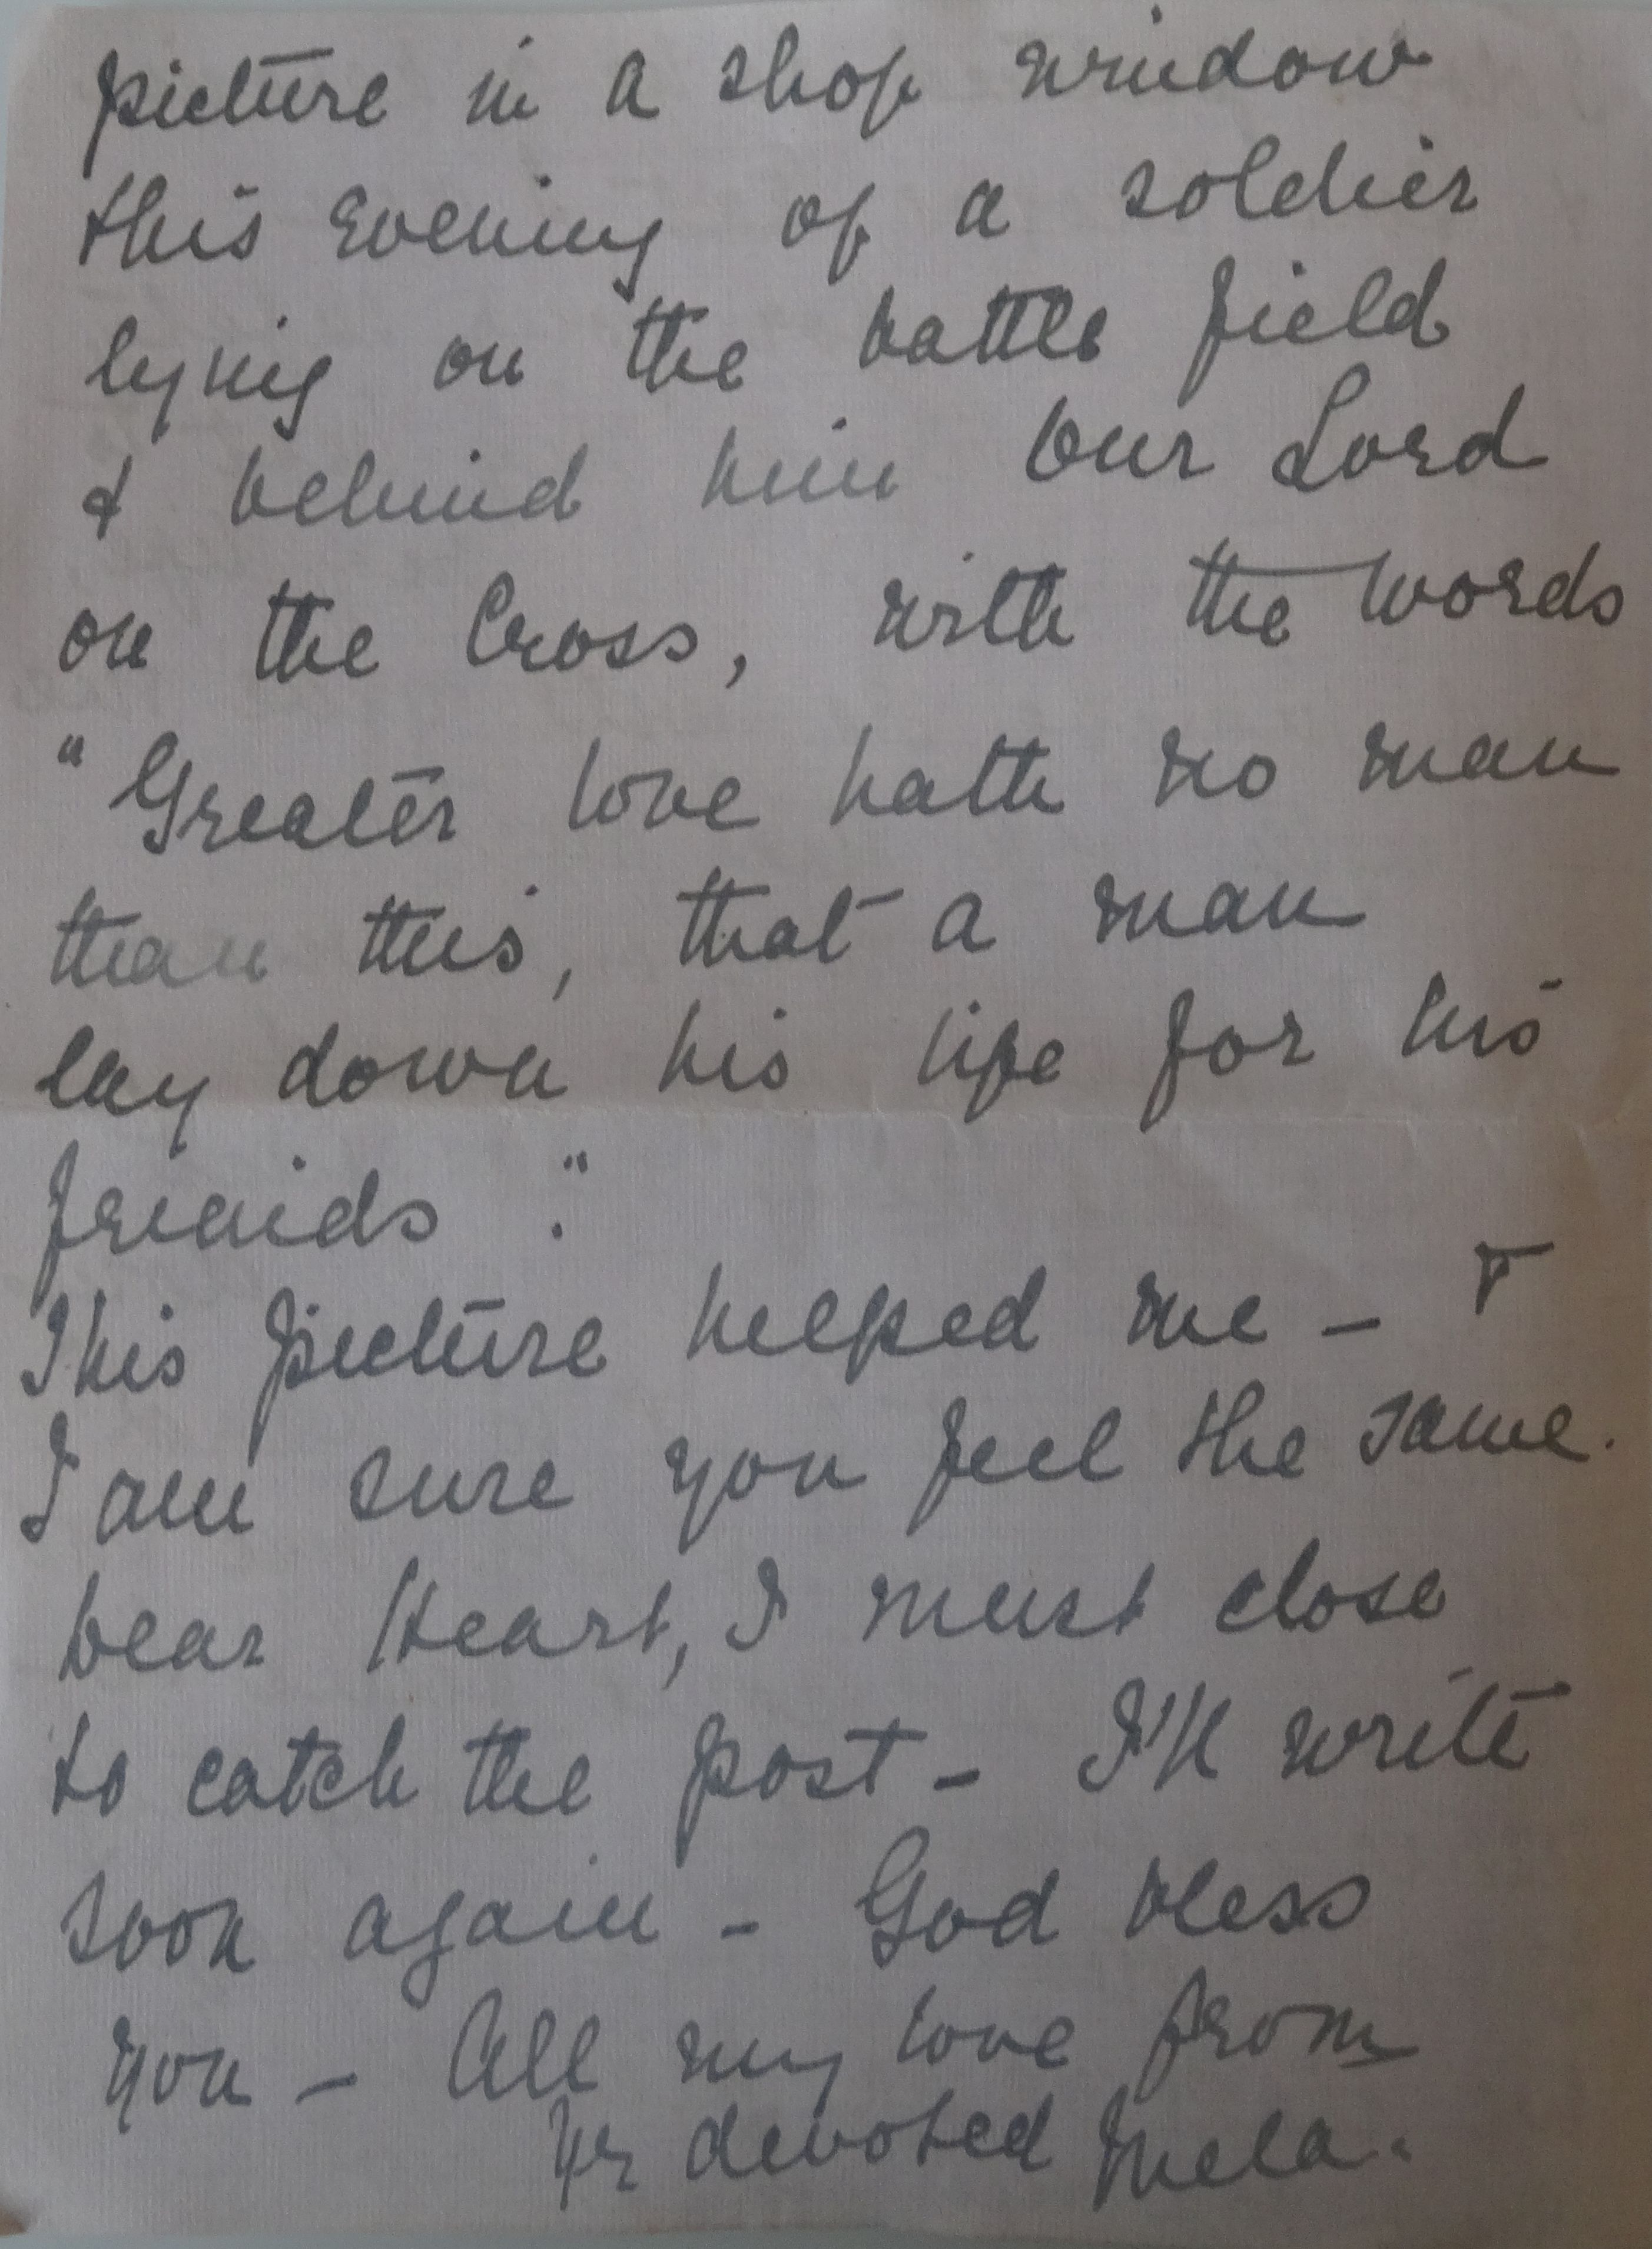 picture in a shop window
this evening of a soldier
lying on the battle field
& behind him Our Lord
on the Cross, with the words
"Greater love hath no man
than this, that a man
lay down his life for his
friends."
This picture helped me - &
I am sure you feel the same.
Dear Heart, I must close
to catch the post - I'll write
soon again - God bless
you - All my love from
Yr devoted Mela.